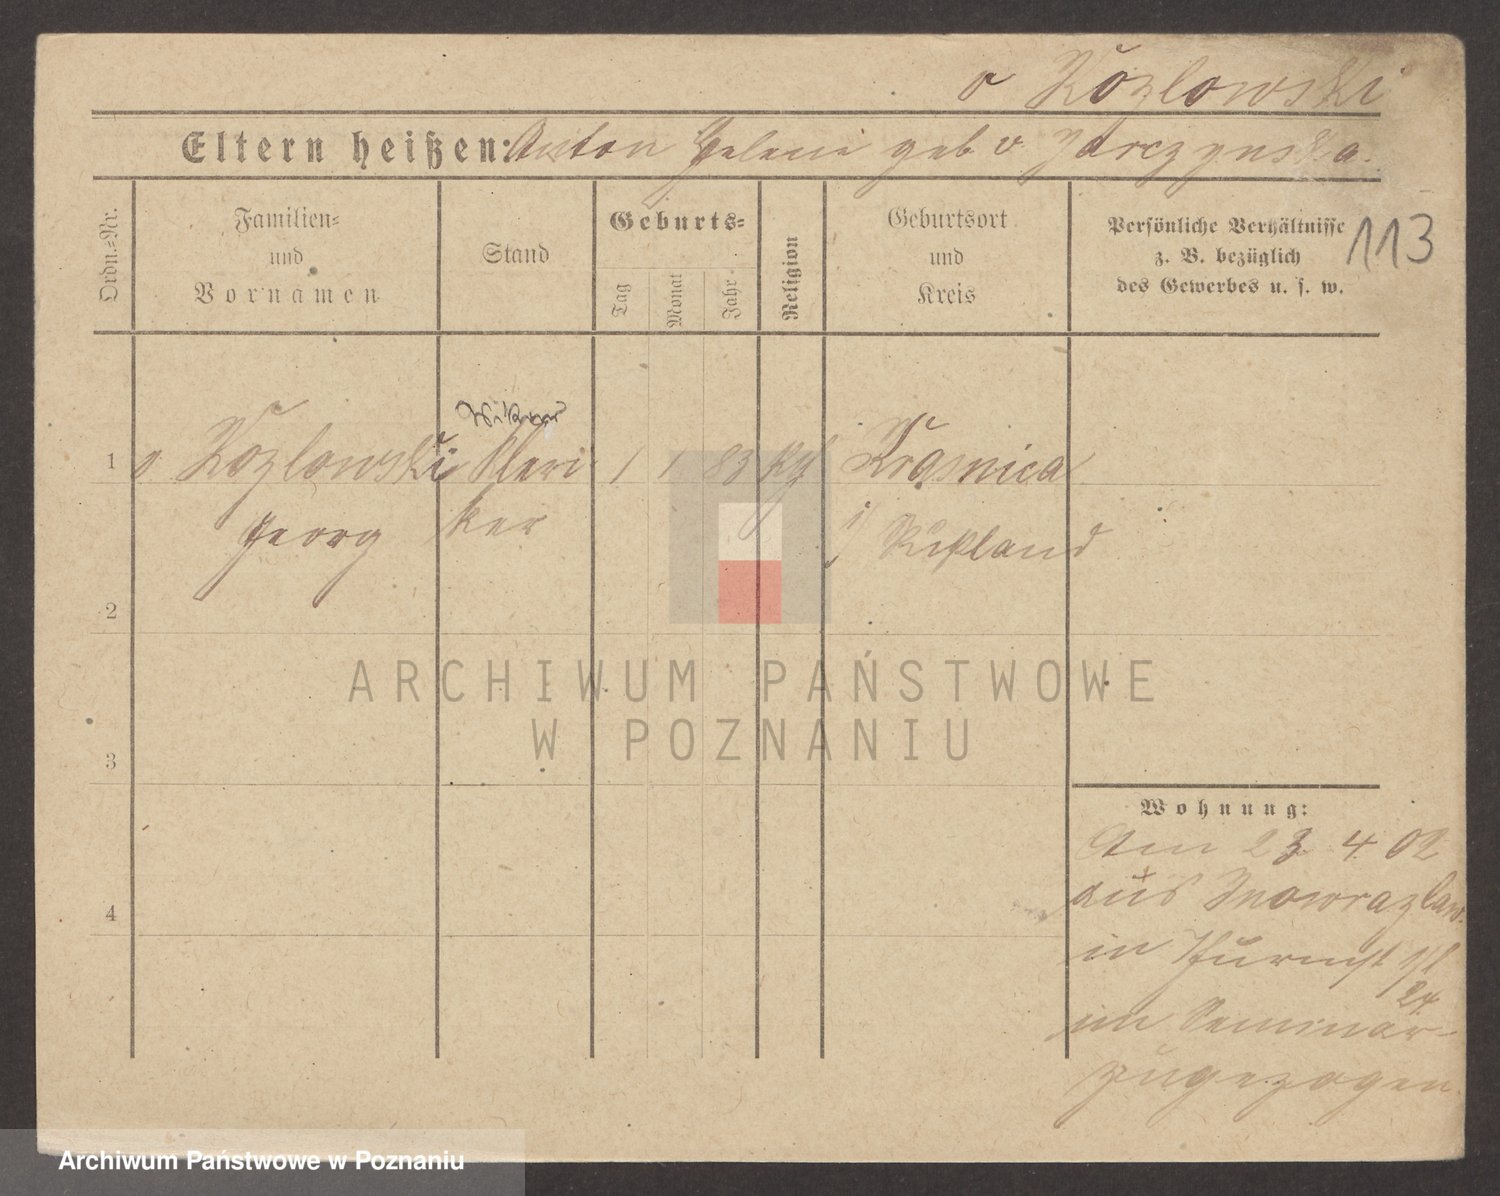 v Kozlowski
Eltern heißen: Anton Helene geb v Jarczynska.
Ordn.=Nr.
Familien=
und
Vornamen
Stand
Geburts=
Tag
Monat
Jahr
Religion
Geburtsort
und
Kreis
Persönliche Verhältnisse
z. B. bezüglich
des Gewerbes u. s. w.
113
Vikar
1 v. Kozlowski Kleri 1 1 83 Kth Krasnica
Georg ker i/ Rußland
2
3
4
Wohnung:
Am 23 4 02
aus Inowrazlaw.
in
24
im Seminar
zugezogen
ARCHIWUM PAŃSTWOWE
W POZNANIU
Archiwum Państwowe w Poznaniu